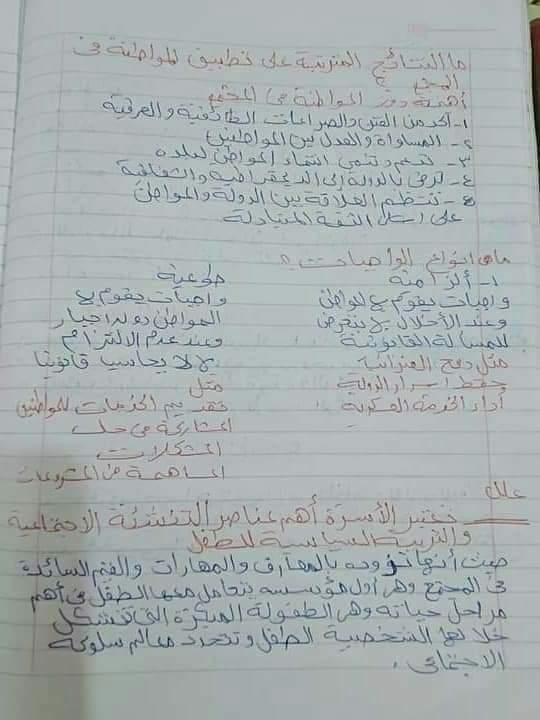 ما النتائج المترتبة على تطبيق المواطنة فى
المجتمع
أهمية دور المواطنة فى المجتمع
١- الحد من الفتن والصراعات الطائفية والعرقية
٢- المساواة والعدل بين المواطنين
٣- تدعم وتنمى انتماء المواطن لبلده
٤- ترقى بالدولة إلى الديمقراطية والشفافية
٥- تنظم العلاقة بين الدولة والمواطن
على أساس الثقة المتبادلة
ما هى أنواع الواجبات ؟
١- إلزامية
واجبات يقوم بها المواطن
وعند الأخلال بها يتعرض
للمسائلة القانونية
مثل دفع الضرائب
حفظ أسرار الدولة
أداء الخدمة العسكرية
طوعية
واجبات يقوم بها
المواطن دون اجبار
وعند عدم الالتزام
بها لا يحاسب قانونيا
مثل
تقديم الخدمات للمواطنين
المشاركة فى حل
المشكلات
المساهمة فى المشروعات
علل
تعتبر الأسرة أهم عناصر التنشئة الاجتماعية
والتربية السياسية للطفل
حيث أنها تزوده بالمعارف والمهارات والقيم السائدة
فى المجتمع وهى أول مؤسسه يتعامل معها الطفل فى أهم
مراحل حياته وهى الطفولة المبكرة التى تتشكل
خلالها الشخصية الطفل وتتحدد معالم سلوكه
الاجتماعى .